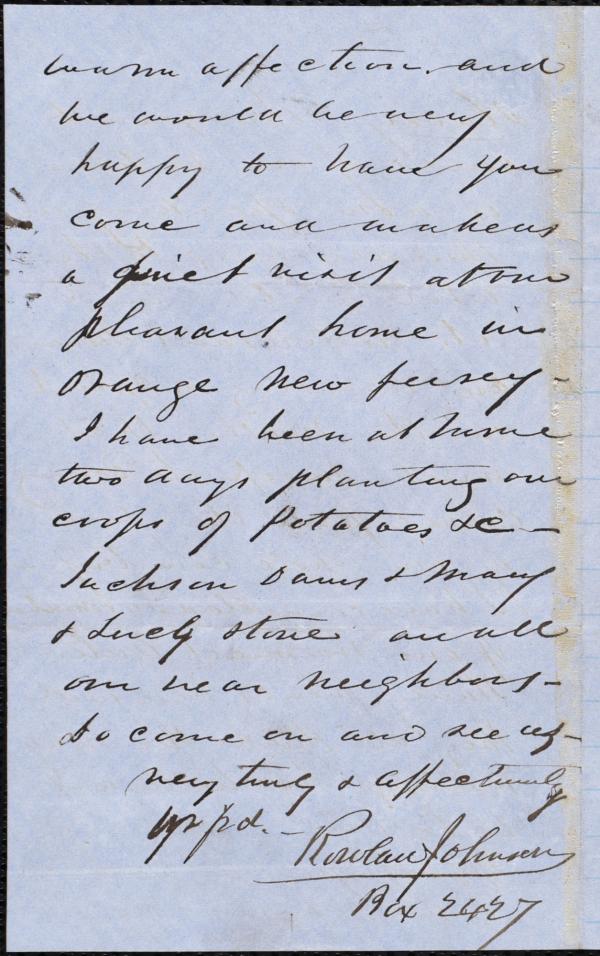 warm affection. and
we would be very
happy to have you
come and make us
a quiet visit at our
pleasant home in
Orange New Jersey -
I have been at home
two days planting our
crops of Potatoes &c -
Jackson Davis & Mary
& Lucy Stone are all
our near neighbors -
do come on and see us -
very truly & affectionately
yr frd. -
Rowland Johnson
Box 2427